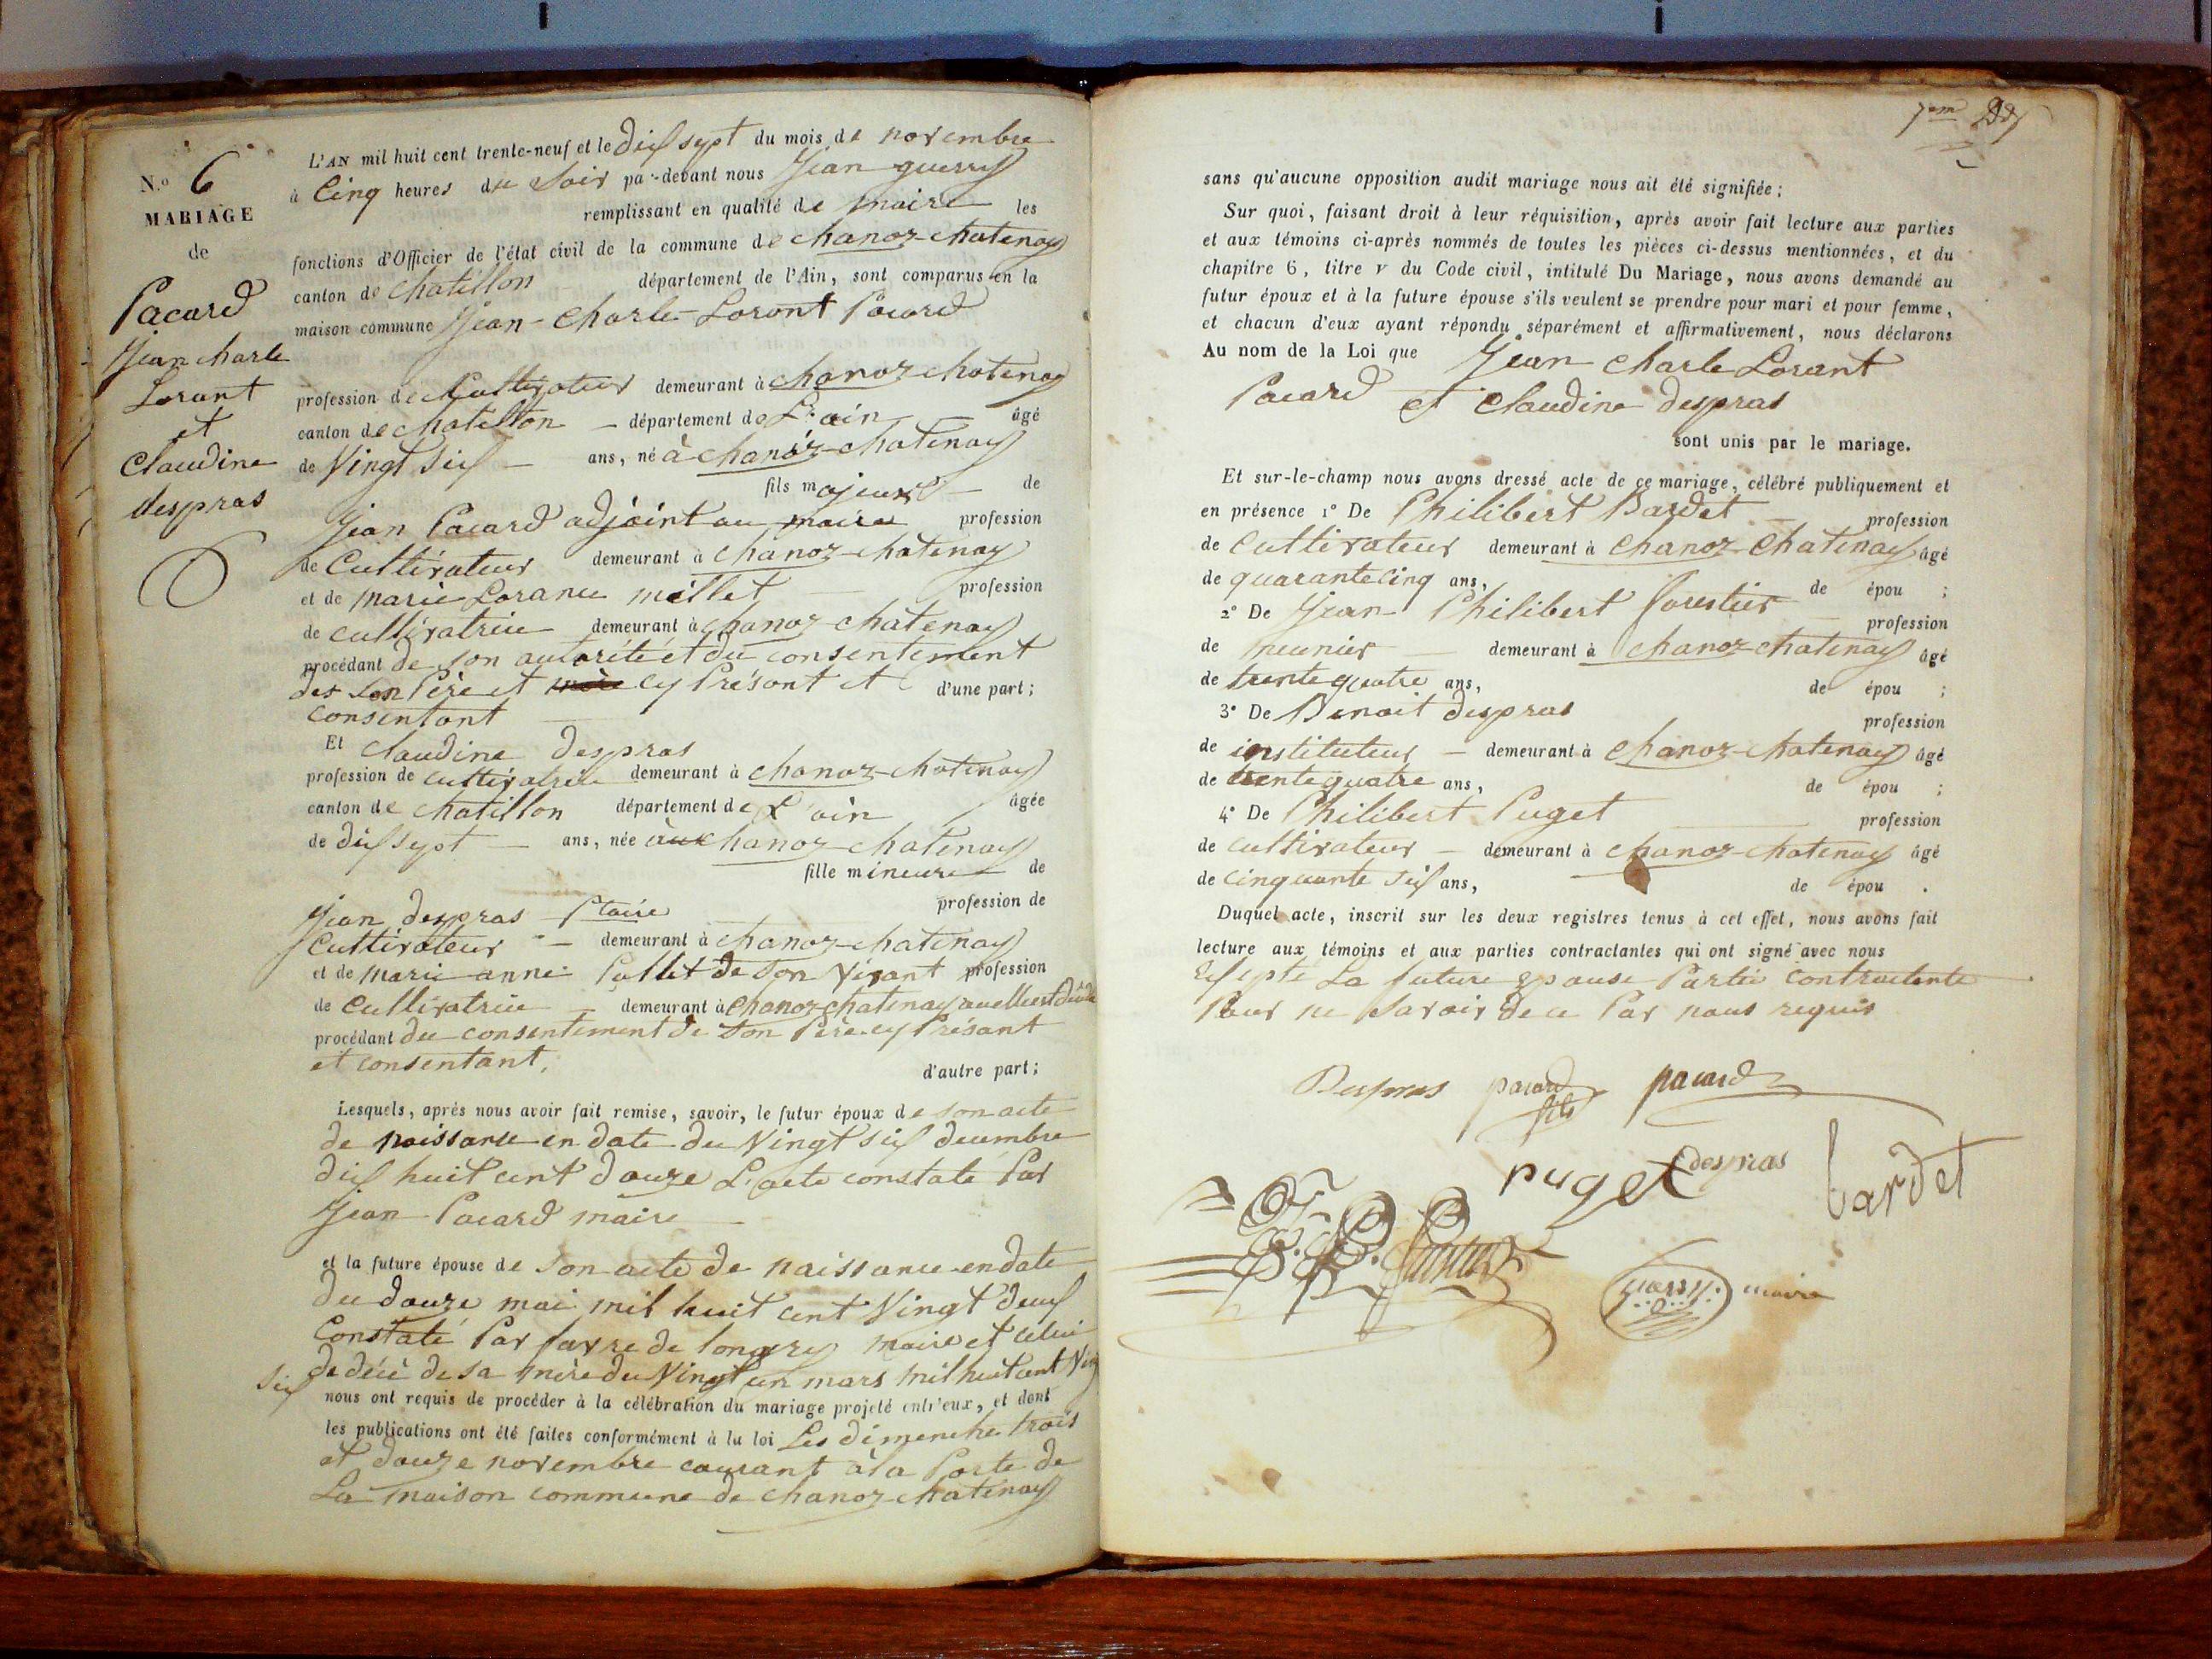 N.o 6
MARIAGE
de
Pacard
Jean charle
Lorant
et
Claudine
despras
L'AN mil huit cent trente-neuf et le dix sept du mois de novembre
à Cinq heures du Soir par-devant nous Jean guerry
remplissant en qualité de maire les
fonctions d'Officier de l'état civil de la commune de chanoz-chatenay
canton de chatillon département de l'Ain, sont comparus en la
maison commune Jean-Charle-Lorant Pacard
profession de Cultivateur demeurant à chanoz chatenay
canton de chatillon département de L'ain âgé
de Vingt six ans, né à chanoz-chatenay
fils majeur de
Jean Pacard adjoint au maire profession
de Cultivateur demeurant à chanoz-chatenay
et de marie Lorance millet profession
de cultivatrice demeurant à chanoz chatenay
procédant de son autorité et du consentement
des son Père et mère cy Présant et d'une part;
consentant
Et Claudine despras
profession de cultivatrice demeurant à chanoz-chatenay
canton de chatillon département de L'ain âgée
de dix sept ans, née à chanoz-chatenay
fille mineure de
Jean despras profession de
Cultivateur demeurant à chanoz-chatenay
et de marie anne Pollet de son Vivant profession
de Cultivatrice demeurant à chanoz chatenay
procédant du consentement de son Père cy Présant
et consentant, d'autre part;
Lesquels, après nous avoir fait remise, savoir, le futur époux de son acte
de naissance en date du Vingt six decembre
dix huit cent douze L'acte constaté Par
Jean Pacard maire
et la future épouse de son acte de naissance en date
du douze mai mil huit cent Vingt deux
Constaté Par favre de longry maire et celui
de décè de sa mère du Vingt un mars mil huit cent Vingt
six
nous ont requis de procéder à la célébration du mariage projeté entr'eux, et dont
les publications ont été faites conformément à la loi Les dimenche trois
et douze novembre courant à la Porte de
La maison commune de chanoz-chatenay
7em
sans qu'aucune opposition audit mariage nous ait été signifiée;
Sur quoi, faisant droit à leur réquisition, après avoir fait lecture aux parties
et aux témoins ci-après nommés de toutes les pièces ci-dessus mentionnées, et du
chapitre 6, titre v du Code civil, intitulé Du Mariage, nous avons demandé au
futur époux et à la future épouse s'ils veulent se prendre pour mari et pour femme,
et chacun d'eux ayant répondu séparément et affirmativement, nous déclarons
Au nom de la Loi que Jean Charle Lorant
Pacard et Claudine despras
sont unis par le mariage.
Et sur-le-champ nous avons dressé acte de ce mariage, célébré publiquement et
en présence 1° De Philibert Bardet profession
de Cultivateur demeurant à Chanoz-Chatenay âgé
de quarante cinq ans, de épou ;
2° De Jean Philibert forestier profession
de meunier demeurant à Chanoz-chatenay âgé
de trente quatre ans, de épou ;
3° De Benoit despras profession
de instituteur demeurant à Chanoz-chatenay âgé
de trente quatre ans, de épou ;
4° De Philibert Puget profession
de cultivateur demeurant à chanoz-chatenay âgé
de cinquante six ans, de épou .
Duquel acte, inscrit sur les deux registres tenus à cet effet, nous avons fait
lecture aux témoins et aux parties contractantes qui ont signé avec nous
Exsepté La future epouse Partie contractante
Pour ne Savoir de ce Par nous requis
Despras pacard fils pacard
puget despras bardet
guerry maire